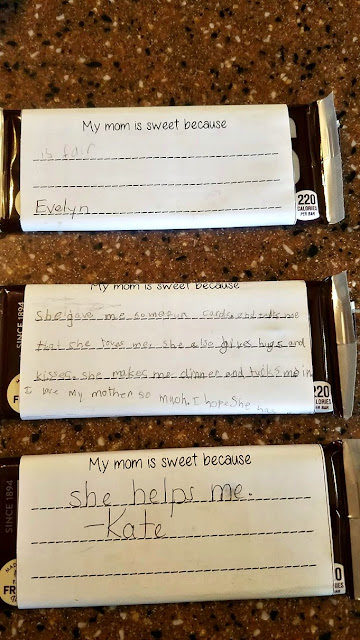 My mom is sweet because
is fair
Evelyn
220
CALORIES
PER BAR
My mom is sweet because
SINCE 1894
she gave me
cards and tells me
that she loves me. she also gives hugs and
kisses. she makes me dinner and tucks me in
I love my mother so much. I hope she has
220
CALORIES
PER BAR
My mom is sweet because
SINCE 1894
she helps me.
-Kate